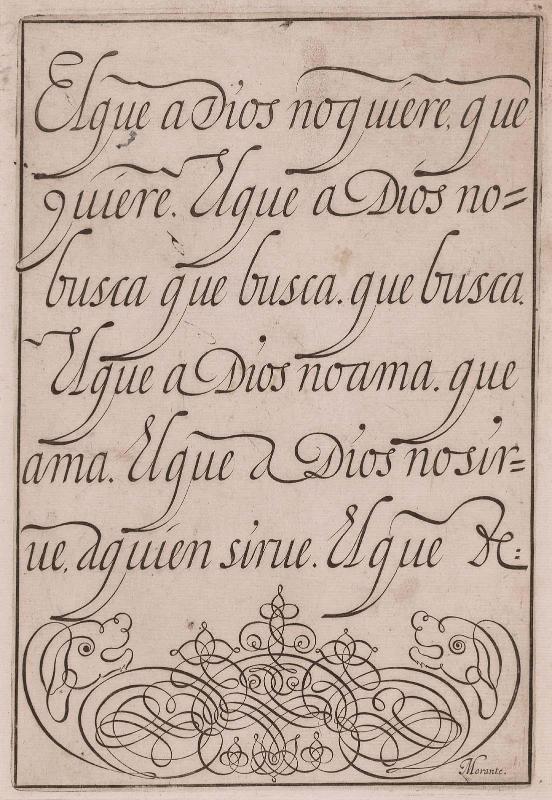 El que a Dios no quiere, que
quiere. El que a Dios no=
busca que busca. que busca.
El que a Dios no ama. que
ama. El que a Dios no sir=
ue, aquien sirue. El que &c:
Morante.